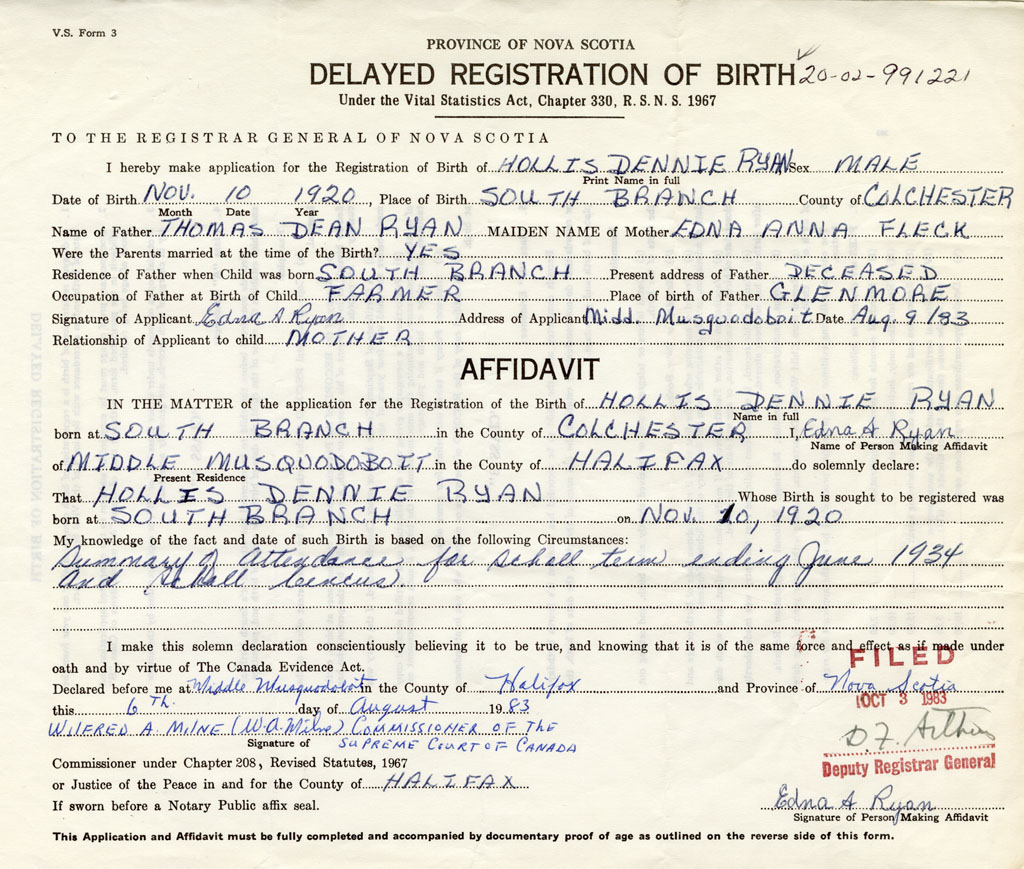 V.S. Form 3
PROVINCE OF NOVA SCOTIA
DELAYED REGISTRATION OF BIRTH 20-02-991221
Under the Vital Statistics Act, Chapter 330, R.S.N.S. 1967
TO THE REGISTRAR GENERAL OF NOVA SCOTIA
I hereby make application for the Registration of Birth of HOLLIS DENNIE RYAN Sex MALE
Print Name in full
Date of Birth NOV. 10 1920, Place of Birth SOUTH BRANCH County of COLCHESTER
Month Date Year
Name of Father THOMAS DEAN RYAN MAIDEN NAME of Mother EDNA ANNA FLECK
Were the Parents married at the time of the Birth? YES
Residence of Father when Child was born SOUTH BRANCH Present address of Father DECEASED
Occupation of Father at Birth of Child FARMER Place of birth of Father GLENMORE
Signature of Applicant Edna A Ryan Address of Applicant Midd. Musquodoboit Date Aug. 9/83
Relationship of Applicant to child MOTHER
AFFIDAVIT
IN THE MATTER of the application for the Registration of the Birth of HOLLIS DENNIE RYAN
Name in full
born at SOUTH BRANCH in the County of COLCHESTER I, Edna A Ryan
Name of Person Making Affidavit
of MIDDLE MUSQUODOBOIT in the County of HALIFAX do solemnly declare:
Present Residence
That HOLLIS DENNIE RYAN Whose Birth is sought to be registered was
born at SOUTH BRANCH on NOV. 10, 1920
My knowledge of the fact and date of such Birth is based on the following Circumstances:
Summary of Attendance for scholl term ending June 1934
And Scholl Cencus)
I make this solemn declaration conscientiously believing it to be true, and knowing that it is of the same force and effect as if made under
oath and by virtue of The Canada Evidence Act.
FILED
Declared before me at Middle Musquodoboit in the County of Halifax and Province of Nova Scotia
this 6 Th. day of August 1983
OCT 3 1983
WILFRED A MILNE (W.A. Milne) COMMISSIONER OF THE
Signature of SUPREME COURT OF CANADA
Deputy Registrar General
Commissioner under Chapter 208, Revised Statutes, 1967
or Justice of the Peace in and for the County of HALIFAX
If sworn before a Notary Public affix seal.
Edna A Ryan
Signature of Person Making Affidavit
This Application and Affidavit must be fully completed and accompanied by documentary proof of age as outlined on the reverse side of this form.